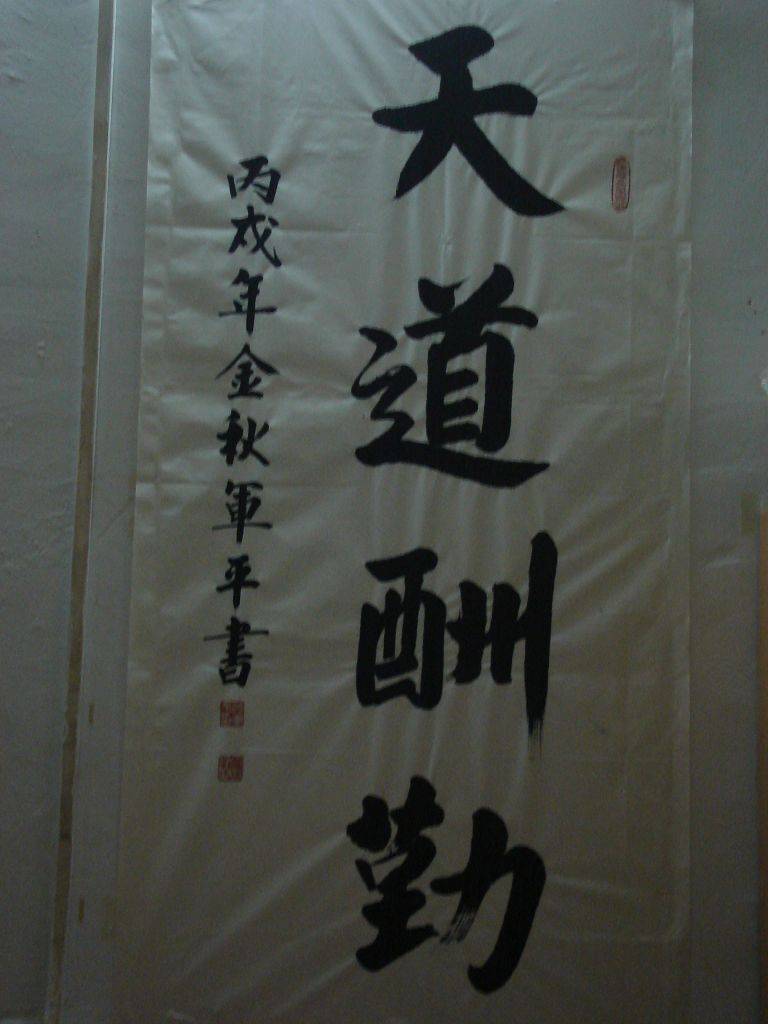 天道酬勤
丙戌年金秋軍平書